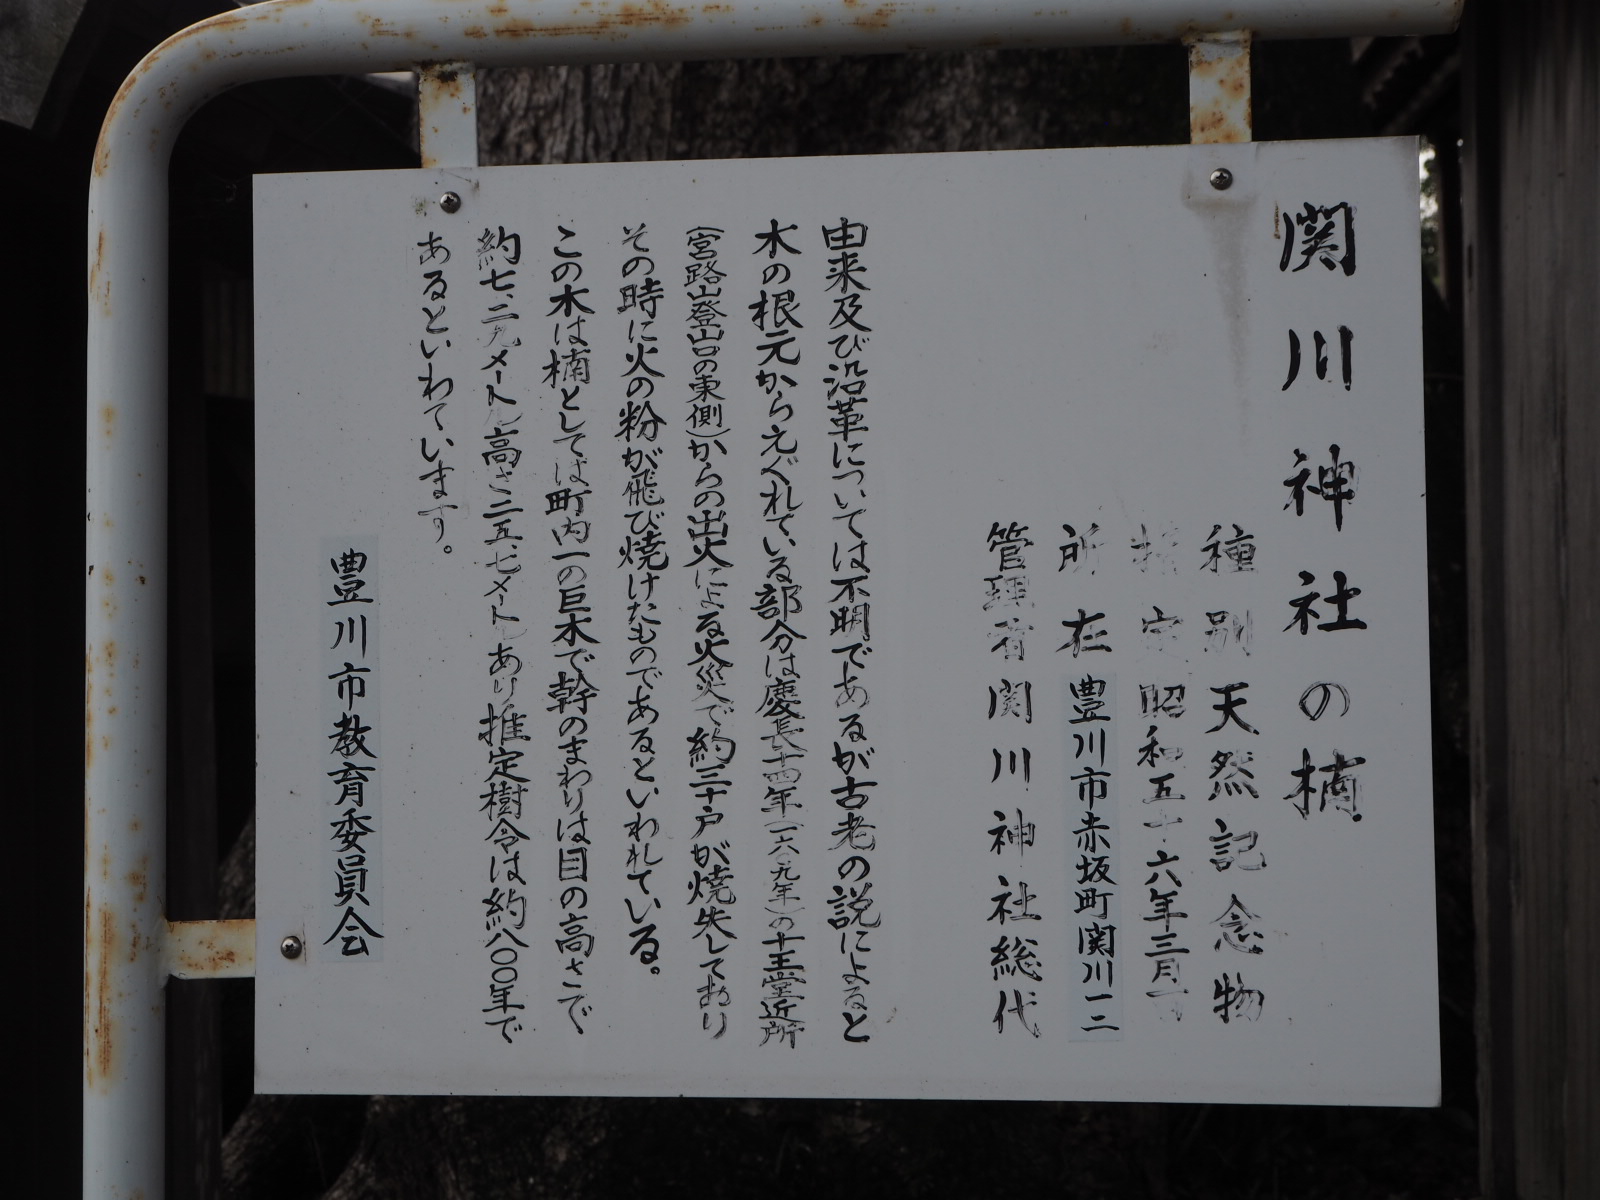 関川神社の楠
種別 天然記念物
指定 昭和五十六年三月一日
所在 豊川市赤坂町関川一二
管理者 関川神社総代
由来及び沿革については不明であるが古老の説によると
木の根元からえぐれている部分は慶長十四年(一六〇九年)の十王堂近所
(宮路山登山口の東側)からの出火による火災で約三十戸が焼失しており
その時に火の粉が飛び焼けたものであるといわれている。
この木は楠としては町内一の巨木で幹のまわりは目の高さで
約七、二九メートル高さ二五、七メートルあり推定樹令は約八〇〇年で
あるといわています。
豊川市教育委員会